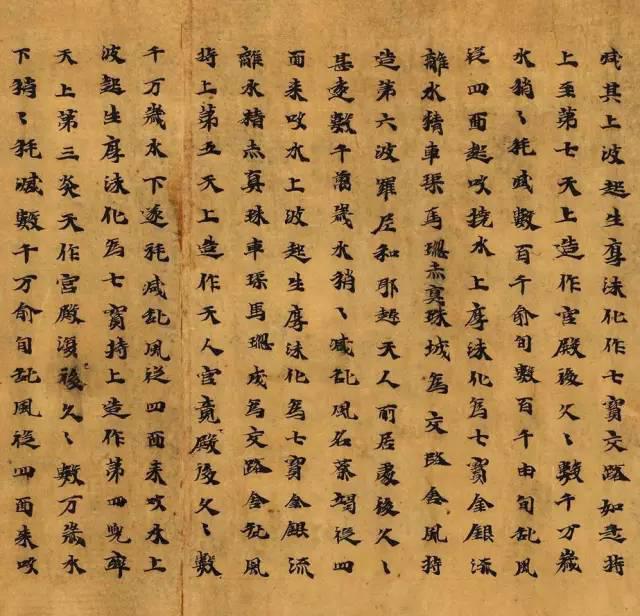 减其上波起生厚沫化作七寳交路如是持
上至第七天上造作宫殿後久〻數千万歲
水稍〻耗减數百千俞旬數百千由旬亂風
從四面起吹撓水上厚沫化為七寳金銀流
離水精車璖馬瑙赤真珠城為交路舍風持
造第六波羅尼和耶越天人前居處後久〻
甚遠數千萬歲水稍〻减亂風名葉竭從四
面来吹水上波起生厚沫化為七寳金銀流
離水精赤真珠車璖馬瑙成為交路舍亂風
持上第五天上造作天人宫竟殿後久〻數
千万歲水下遂耗减亂風從四面来吹水上
波起生厚沫化為七寳持上造作第四兜率
天上第三炎天作宫殿復後久〻數万歲水
下稍〻耗减數千万俞旬亂風從四面来吹